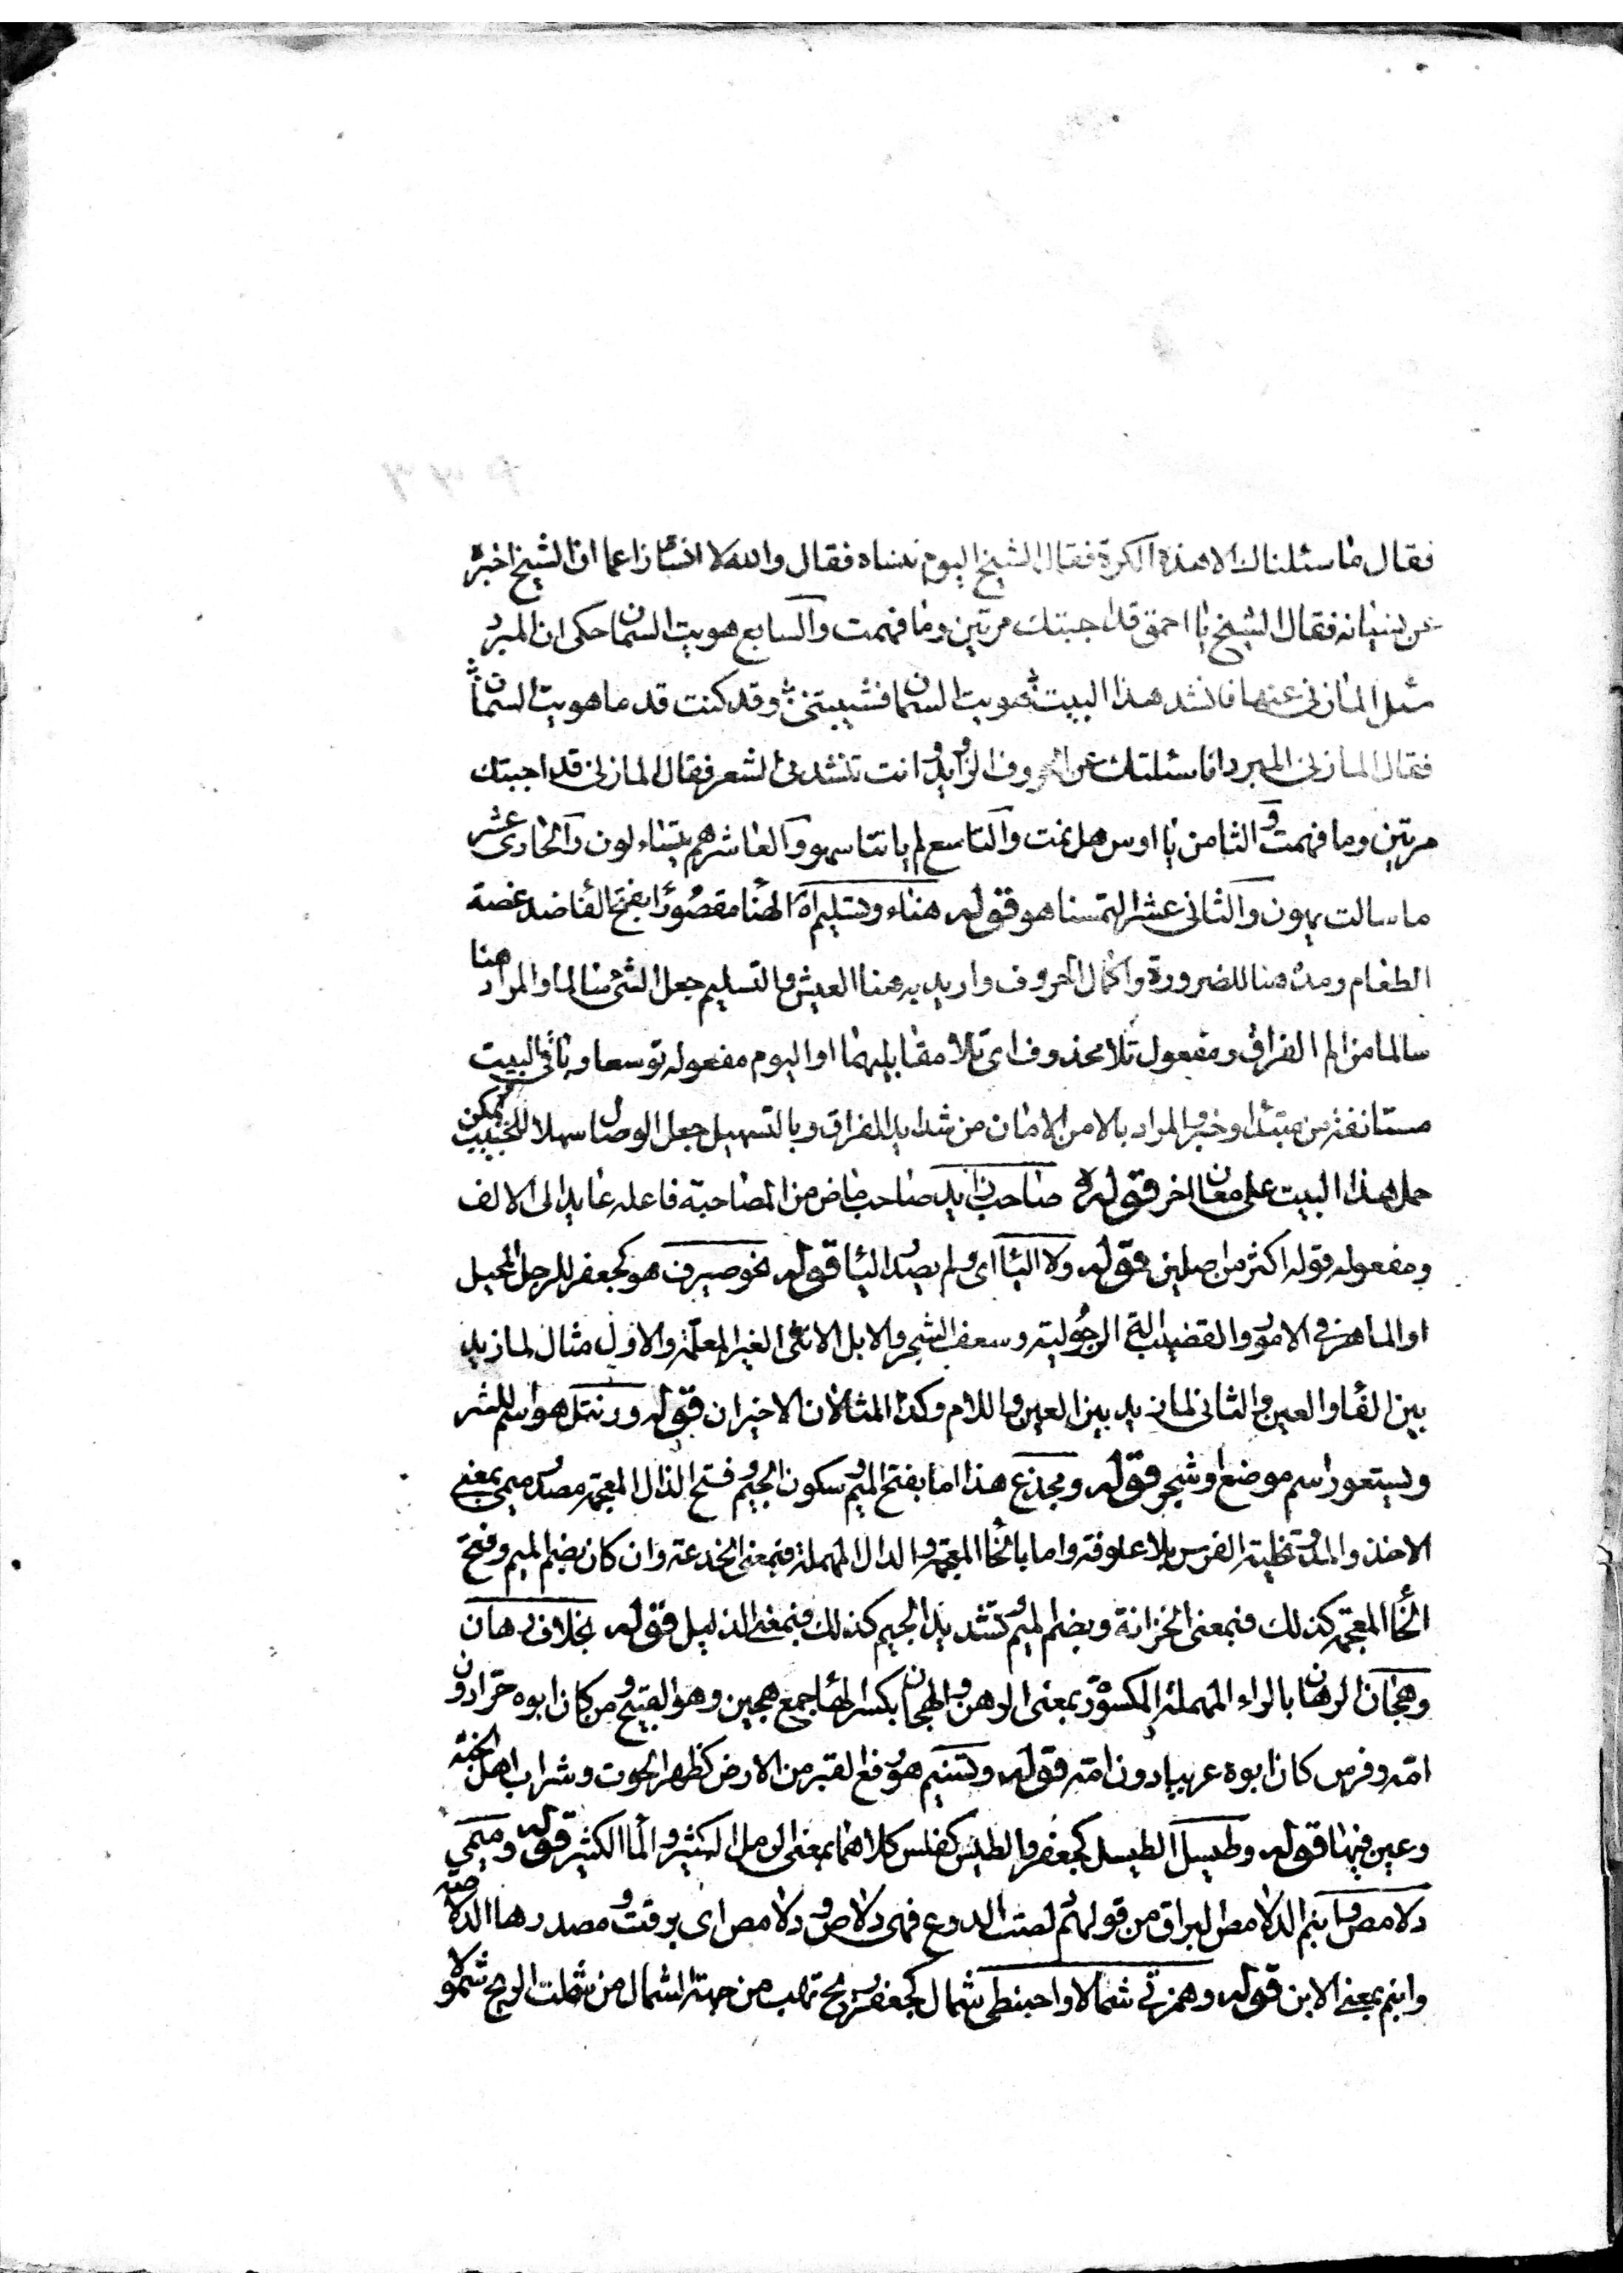 فقال ما سئلناك الا هذه الكرة فقال الشيخ اليوم تنساه فقال والله لا انساه زاعما ان الشيخ اخبره
عن نسيانه فقال الشيخ يا احمق قد اجبتك مرتين وما فهمت والسابع هويت السمان حكى ان المبرد
سئل المازني عنها فانشد هذا البيت هويت السمان فشيبتني وقد كنت قدما هويت السمانا
فقال المازني المبرد انا سئلتك عن الحروف الزوايد وانت تنشدني الشعر فقال المازني قد اجبتك
مرتين وما فهمت والثامن يا اوس هل نمت والتاسع لم ياتنا سهو والعاشر هم يتساءلون والحادي عشر
ما سالت يهون والثاني عشر التمسنا هو قوله هناء وتسليم اه الهنا مقصورا بفتح الفا ضد غصة
الطعام ومده هنا للضرورة واكمال الحروف واريد به هنا العيش والتسليم جعل الشئ سالما والمراد هنا
سالما من الم الفراق ومفعول تلا محذوف اى تلا مقابليهما او اليوم مفعوله توسعا وثانى البيت
مستانفة من مبتدا وخبر والمراد بالامن الامان من شدايد الفراق وبالتسهيل جعل الوصال سهلا للحبيب ويمكن
حمل هذا البيت على معان اخر قوله صاحب زايد صاحب ماض من المصاحبة فاعله عايد الى الالف
ومفعوله قوله اكثر من اصلين قوله ولا اليا اى ولم يصدر اليا قوله نحو صيرف هو كجعفر للرجل المحيل
او الماهر فى الامور والقضيب التي الرجولية وسعف الشجر والابل الانثى الغير المعلمة والاول مثال لما زيد
بين الفا والعين والثانى لما زيد بين العين واللام وكذا المثالان الاخيران قوله ورنتل هو اسم للشر
ويستعور اسم موضع او شجر قوله ومجذع هذا اما بفتح الميم وسكون الجيم وفتح الذال المعجمة مصدر ميمى بمعنى
الاخذ والمد وتخلية الفرس بلا علوفة واما بالخا المعجمة والدال المهملة فبمعنى الخدعة وان كان بضم الميم وفتح
الخا المعجمة كذلك فبمعنى الخزانة وبضم الميم وتشديد الجيم كذلك فبمعنى الذليل قوله بخلاف رهان
وهجان الرهان بالراء المهملة المكسورة بمعنى الرهن والهجان بكسر الها جمع هجين وهو القبيح ومن كان ابوه حرا دون
امه وفرس كان ابوه عربيا دون امه قوله وتسنيم هو رفع القبر من الارض كظهر الحوت وشراب اهل الجنة
وعين فيها قوله وطيسل الطيسل كجعفر والطيس كفلس كلاهما بمعنى الرمل الكثير والما الكثير قوله وميمى
دلامص وابنم الدلامص البراق من قولهم دلصت الدروع فهى دلاص ودلامص اى برقت ومصدرها الدلاصة
وابنم بمعنى الابن قوله وهمزتى شمالا واحبنطى شمال كجعفر ريح تهب من جهة الشمال من شملت الريح شمولا